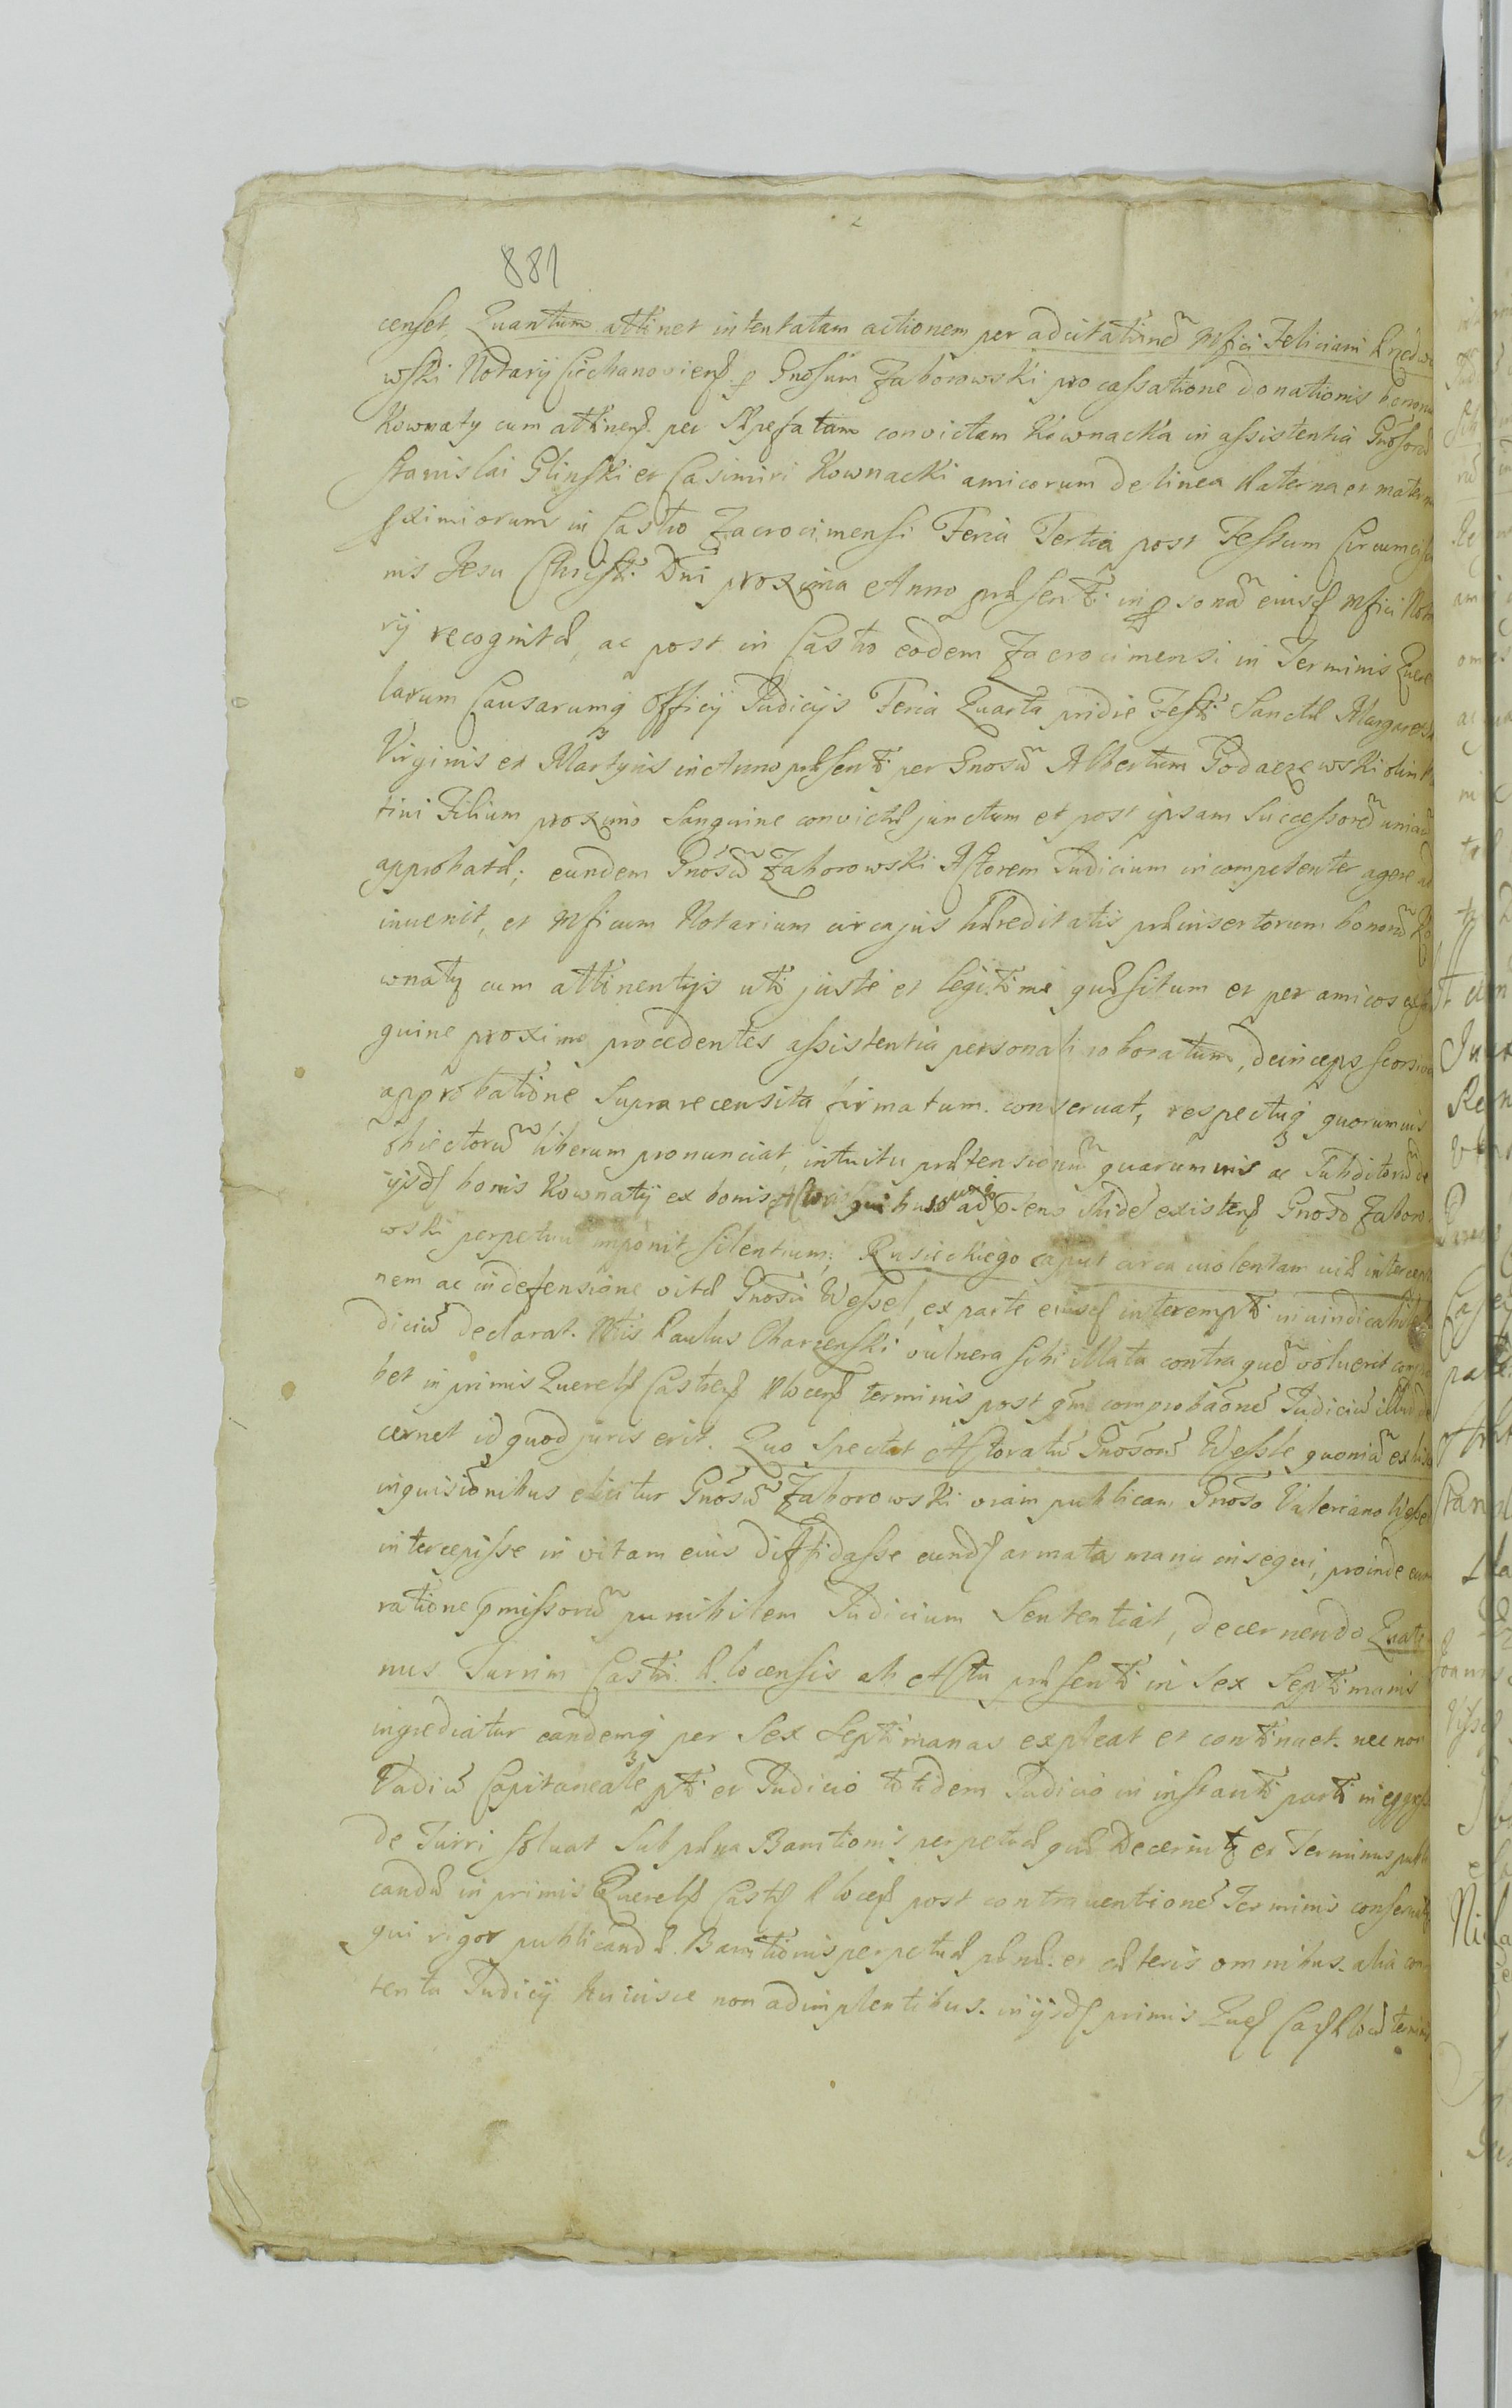 881
censet, Quantum attinet intentatam actionem per adcitatiōnē Mfici Feliciani
wski Notarÿ Ciechanovienſ. ꝑ Gnosum Zaborowski pro caſsatione donationis bonorū
Kownaty cum attinenſ. per convictam Kownacka in aſsistentia Gnōsorū
Stanislai Glinski et Casimiri Kownacki amicorum de linea Paterna et materna
in Castro Zacrocimensi Feria Tertia post Festum Circumcisio
nis Jesu Christi Dni proxima Anno præsenti in ꝑsonā eiusd Mfici Nota
rÿ recognitæ, ac post in Castro eodem Zacrocimensi in Terminis Quere
larum Causarumqꝫ Officÿ Judicÿs Feria Quarta pridie Festi Sanctæ Margarethæ
Virginis et Martyris in Anno præsenti per Gnosū Albertum Godaczewski olim
tini Filium proximo Sanguine convictæ junctum et post ipsam Succeſsorē unicū
approbatæ; eundem Gnōsū Zaborowski Actorem Judicium incompetenter agere ad
invenit, et Mficum Notarium circa jus hæreditatis præinsertorum bonorū Ko
wnaty cum attinentÿs uti juste et legitime quæsitum et per amicos ex san
guine proximo procedentes aſsistentia personali roboratum, deinceps seorsiva
approbatione supra recensita firmatum conservat, respectuqꝫ quorumvis
obiectorū liberum pronunciat, intuitu prætensionum quarumvis ac Subditorū de
ÿsd bonis Kownatÿ ex bonis quibus ad existenſ Gnoso Zaboro
wski perpetuū imponit silentium; Rusieckiego caput circa violentam viæ intercep
nem ac in defensione vitæ Gnosi Weſsel, ex parte eiusd interempti invindicabile
diciū declarat. Nlis Paulus Charzenski vulnera sibi illata contra quē voluerit compro
bet in primis Querelſ Castrenſ Plocenſ terminis post qm̄ comprobāonē Judiciū illud de
cernet id quod juris erit. Quo Spectat Actoratū Gnosorū Weſsle quoniā ex
inquisiōnibus elicitur Gnōsū Zaborowski viam publicam Gnōso Valeriano Weſsel
intercepiſse in vitam eius diffidaſse eundſ armata manu insequi, proinde eum
ratione ꝓmiſsorū punibilem Judicium Sententiat, decernendo Quate
nus Turrim Castri Plocensis ab Actu præsenti in Sex Septimanis
ingrediatur eandemqꝫ per Sex Septimanas expleat et continuet. nec non
Vadiū Capitaneale pti et Judicio totidem Judicio in instanti parti in egreſsu
de Turri solvat Sub pæna Banitionis perpetuæ quæ Decernitꝫ et Terminus publi
candæ in primis Querelſ Castſ Plocenſ post contraventionē Terminis conservatꝫ
qui rigor publicandæ Banitionis perpetuæ pænæ et cæteris omnibus alia con
tenta Judicÿ huiusce non adimplentibus. in ÿsdſ primis Queſ Caſ Ploceſ terminis